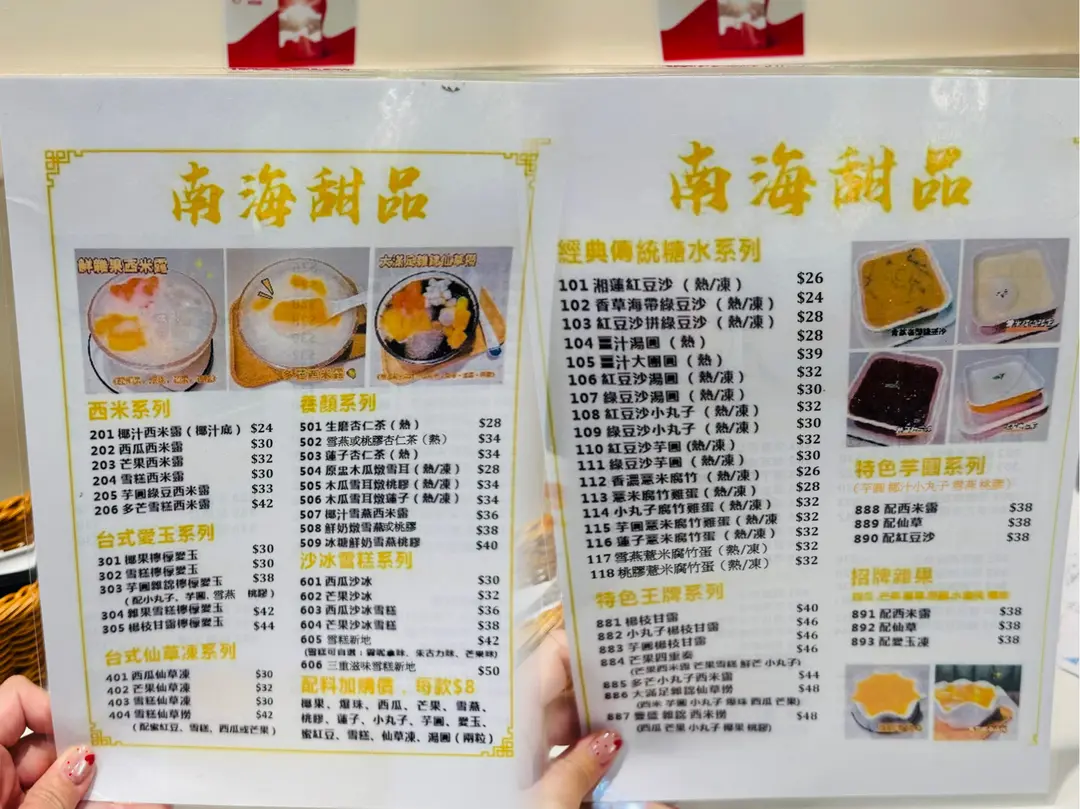 南海甜品
鮮雜果西米露
大滿足雜錦仙草撈
西米系列
201 椰汁西米露（椰汁底） $24
202 西瓜西米露 $30
203 芒果西米露 $32
204 雪糕西米露 $30
205 芋圓綠豆西米露 $33
206 多芒雪糕西米露 $42
台式愛玉系列
301 椰果檸檬愛玉 $30
302 雪糕檸檬愛玉 $30
303 芋圓雜錦檸檬愛玉 $38
（配小丸子、芋圓、雪燕 桃膠）
304 雜果雪糕檸檬愛玉 $42
305 楊枝甘露檸檬愛玉 $44
台式仙草凍系列
401 西瓜仙草凍 $30
402 芒果仙草凍 $32
403 雪糕仙草凍 $30
404 雪糕仙草撈 $42
（配蜜紅豆、雪糕、西瓜或芒果）
養顏系列
501 生磨杏仁茶（熱） $28
502 雪燕或桃膠杏仁茶（熱） $34
503 蓮子杏仁茶（熱） $34
504 原盅木瓜燉雪耳（熱/凍） $28
505 木瓜雪耳燉桃膠（熱/凍） $34
506 木瓜雪耳燉蓮子（熱/凍） $34
507 椰汁雪燕西米露 $36
508 鮮奶燉雪燕或桃膠 $38
509 冰糖鮮奶雪燕桃膠 $40
沙冰雪糕系列
601 西瓜沙冰 $30
602 芒果沙冰 $32
603 西瓜沙冰雪糕 $36
604 芒果沙冰雪糕 $38
605 雪糕新地 $42
（雪糕可自選：雲呢拿味、朱古力味、芒果味）
606 三重滋味雪糕新地 $50
配料加購價，每款$8
椰果、爆珠、西瓜、芒果、雪燕、
桃膠、蓮子、小丸子、芋圓、愛玉、
蜜紅豆、雪糕、仙草凍、湯圓（兩粒）
南海甜品
經典傳統糖水系列
101 湘蓮紅豆沙（熱/凍） $26
102 香草海帶綠豆沙（熱/凍） $24
103 紅豆沙拼綠豆沙（熱/凍） $28
104 薑汁湯圓（熱） $28
105 薑汁大團圓（熱） $39
106 紅豆沙湯圓（熱/凍） $32
107 綠豆沙湯圓（熱/凍） $30
108 紅豆沙小丸子（熱/凍） $32
109 綠豆沙小丸子（熱/凍） $30
110 紅豆沙芋圓（熱/凍） $32
111 綠豆沙芋圓（熱/凍） $30
112 香濃薏米腐竹（熱/凍） $26
113 薏米腐竹雞蛋（熱/凍） $28
114 小丸子腐竹雞蛋（熱/凍） $32
115 芋圓薏米腐竹雞蛋（熱/凍 $32
116 蓮子薏米腐竹雞蛋（熱/凍） $32
117 雪燕薏米腐竹蛋（熱/凍） $32
118 桃膠薏米腐竹蛋（熱/凍） $32
特色王牌系列
881 楊枝甘露 $40
882 小丸子楊枝甘露 $46
883 芋圓楊枝甘露 $46
884 芒果四重奏
(芒果西米露 芒果雪糕 鮮芒 小丸子)
885 多芒小丸子西米露 $44
886 大滿足雜錦仙草撈 $48
(西米 芋圓 小丸子 爆珠 西瓜 芒果)
887 豐盛 雜錦 西米撈 $48
(西瓜 芒果 小丸子 椰果 桃膠)
特色芋圓系列
(芋圓 椰汁小丸子 雪燕 桃膠)
888 配西米露 $38
889 配仙草 $38
890 配紅豆沙 $38
招牌雜果
891 配西米露 $38
892 配仙草 $38
893 配愛玉凍 $38